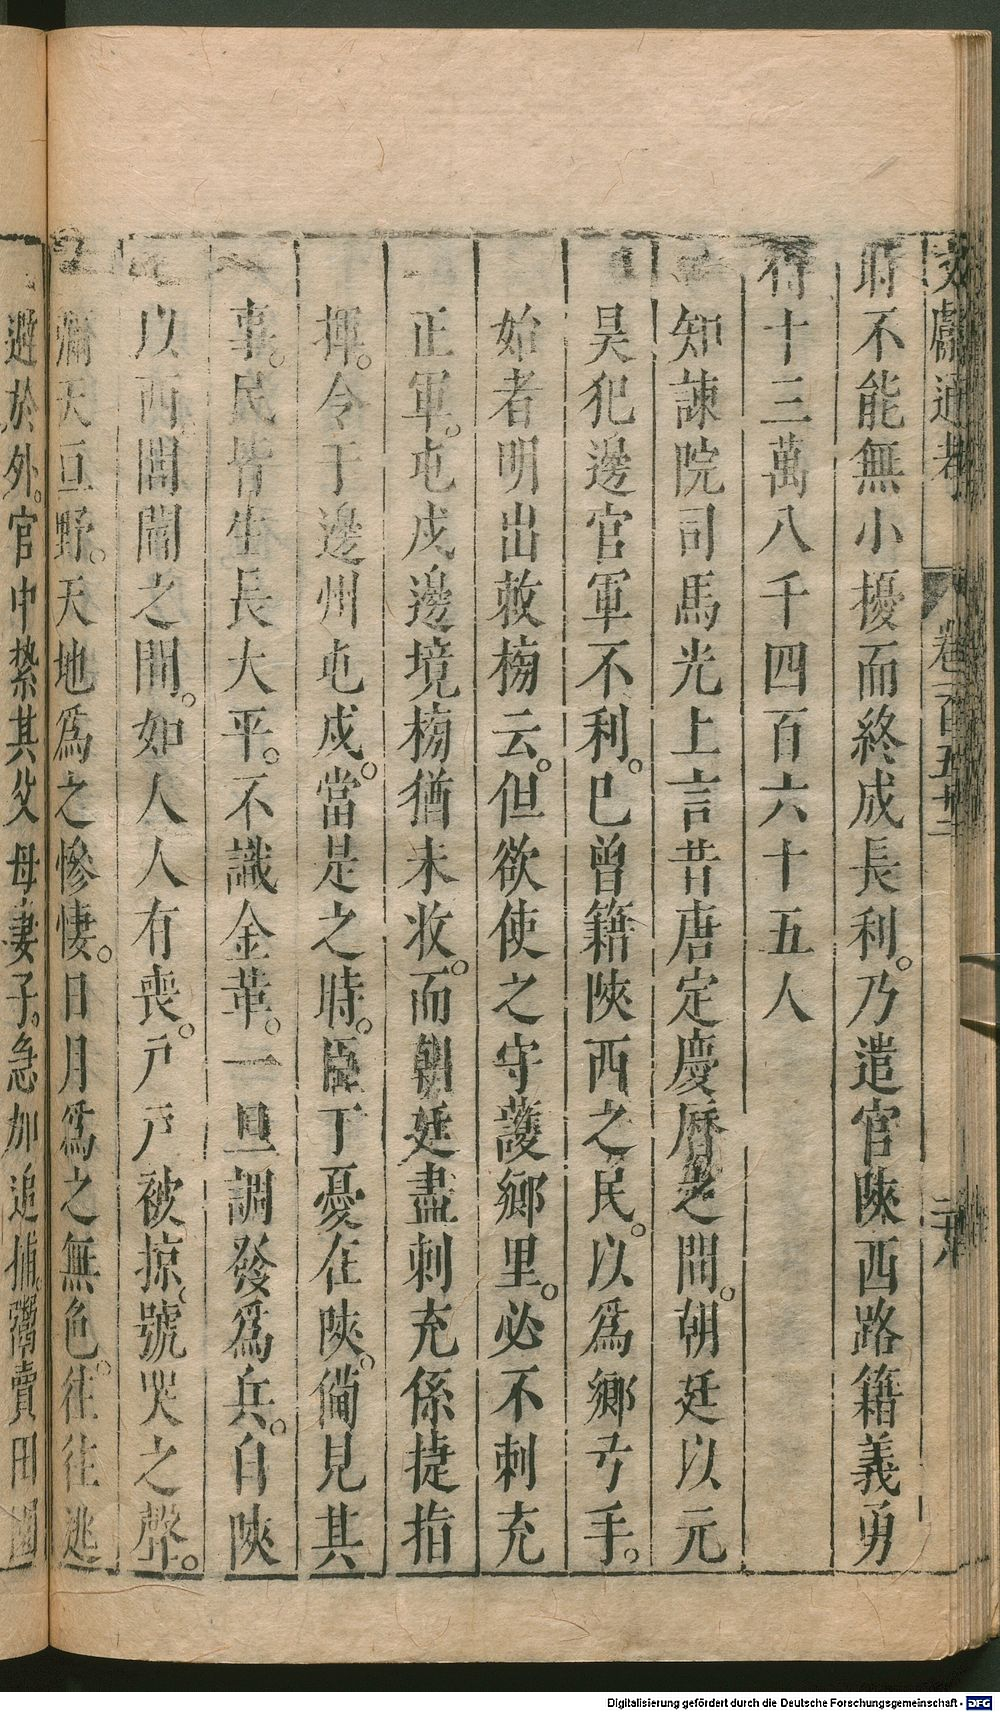 文獻通考 卷一百五十三
時不能無小擾而終成長利。乃遣官陝西路籍義勇
得十三萬八千四百六十五人
知諫院司馬光上言昔唐定慶曆之間。朝廷以元
昊犯邊官軍不利。已曾籍陝西之民。以爲鄉弓手。
始者明出敕榜云。但欲使之守護鄉里。必不刺充
正軍。屯戍邊境榜猶未收。而朝廷盡刺充保捷指
揮。令于邊州屯戍。當是之時。臣丁憂在陝。備見其
事。民皆生長太平。不識金革。一旦調發爲兵。自陝
以西閭閻之間。如人人有喪。戶戶被掠。號哭之聲。
彌天亘野。天地爲之慘悽。日月爲之無色。往往逃
避於外。官中縶其父母妻子。急加追捕。鬻賣田園
Digitalisierung gefördert durch die Deutsche Forschungsgemeinschaft - DFG